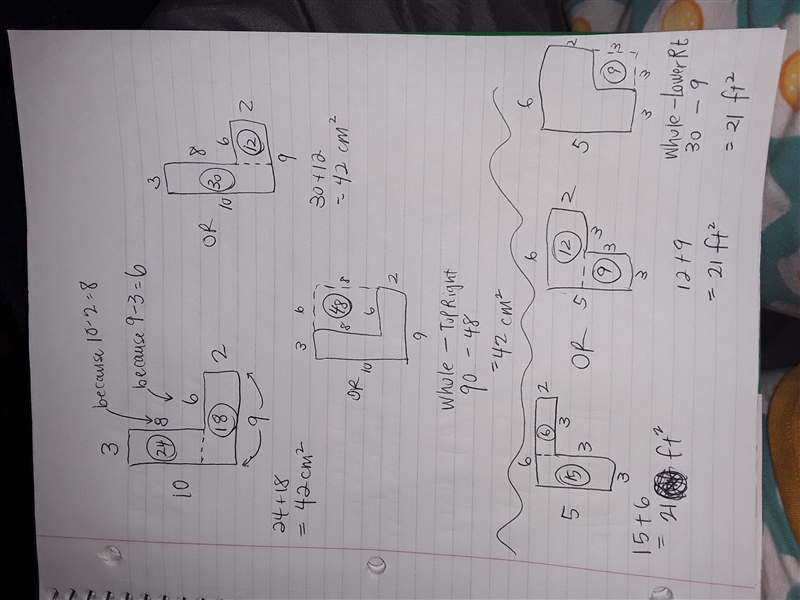 because 10-2=8
because 9-3=6
3
10
24
8
6
2
18
9
24+18
= 42 cm²
OR
3
8
30
10
6
2
12
9
30+12
= 42 cm²
OR
3
6
48
8
8
10
6
2
9
Whole - Top Right
90 - 48
= 42 cm²
6
2
5
6
3
15
3
3
15+6
= 21 ft²
OR
6
2
5
12
3
9
3
3
12+9
= 21 ft²
6
2
5
3
9
3
3
Whole - Lower Rt
30 - 9
= 21 ft²